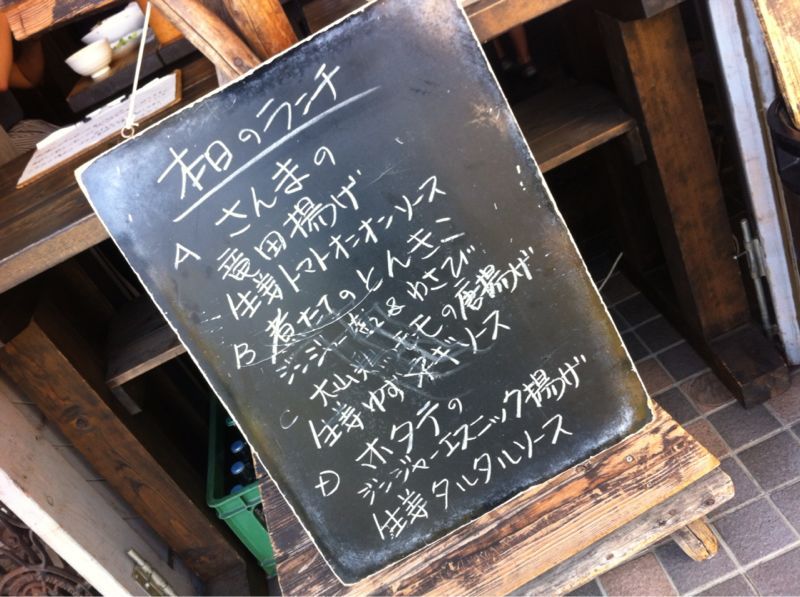 本日のランチ
A さんまの
竜田揚げ
生姜トマトオニオンソース
B 着たてのとんきこ
ジンジー &わさび
C 大山 モモの唐揚げ
生姜ゆずネギソース
D ホタテの
ジンジャーエスニック揚げ
生姜タルタルソース